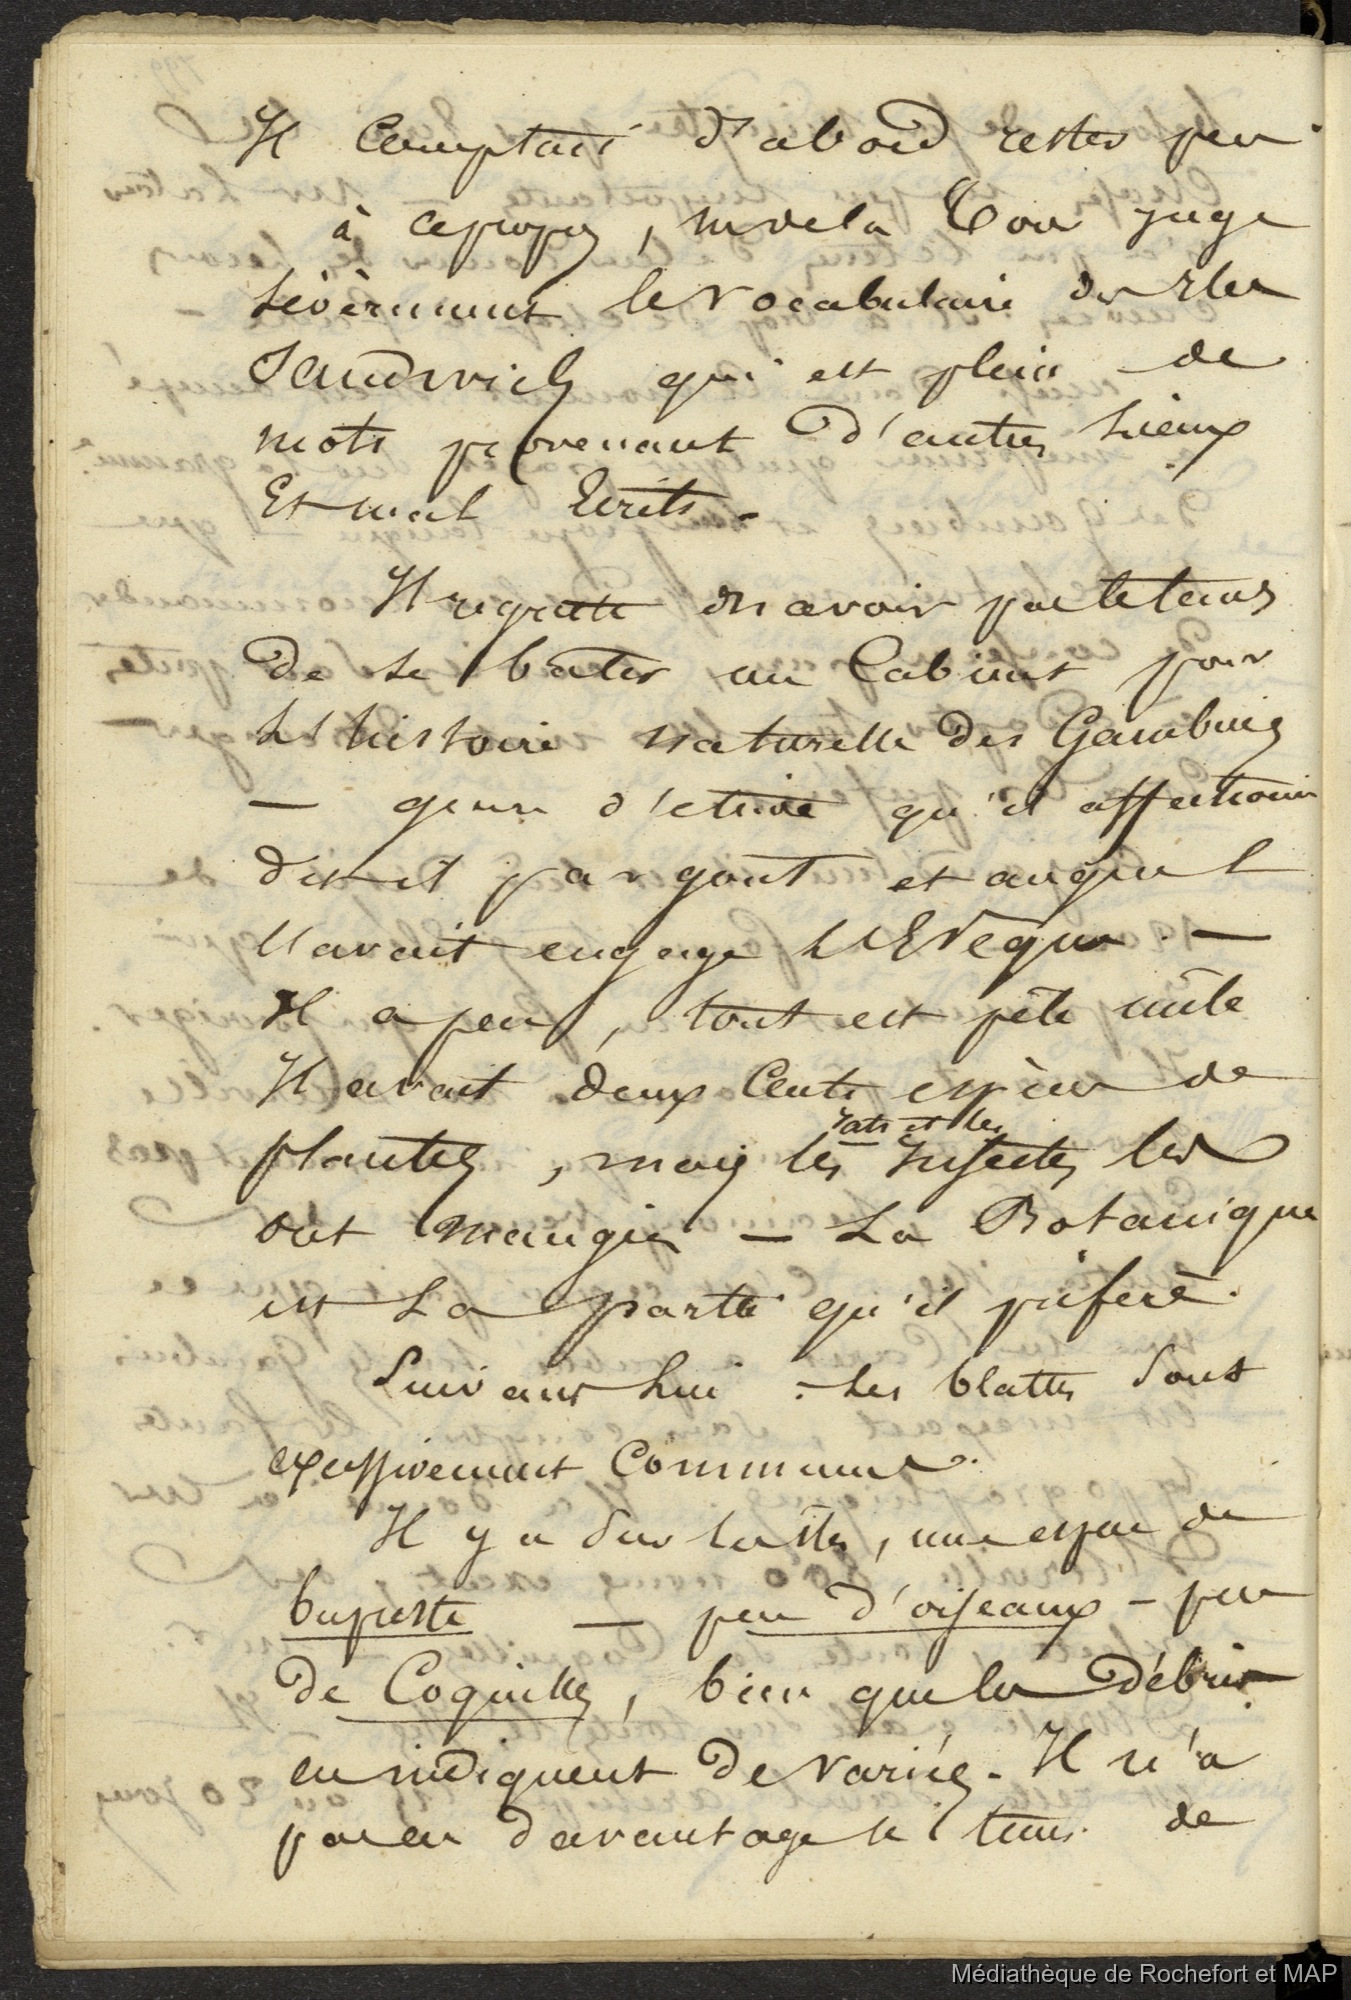 Il comptait d'abord rester peu
à ce propos, m de la Tour juge
sévèrement le vocabulaire des iles
Sandwich qui est plein de
mots provenant d'autres lieux
Et mal Ecrits.
Il regrette de n'avoir pas le tems
De se batir un Cabinet pour
L'histoire naturelle des Gambier
— genre d'etude qu'il affectionne
dit-il par gout et auquel
l'avait engagé L'Evêque. —
Il a peu, tout est pêle mêle
Il avait deux Cents espèces de
rats et les
plantes, mais les Insectes les
ont mangées — La Botanique
est La partie qu'il préfère.
Suivant Lui : les blattes sont
excessivement Communes.
Il y a sur les iles, une espèce de
bupreste — peu d'oiseaux - peu
de Coquilles, bien que les Débris
en indiquent De variés. Il n'a
pas eu davantage le tems de
Médiathèque de Rochefort et MAP